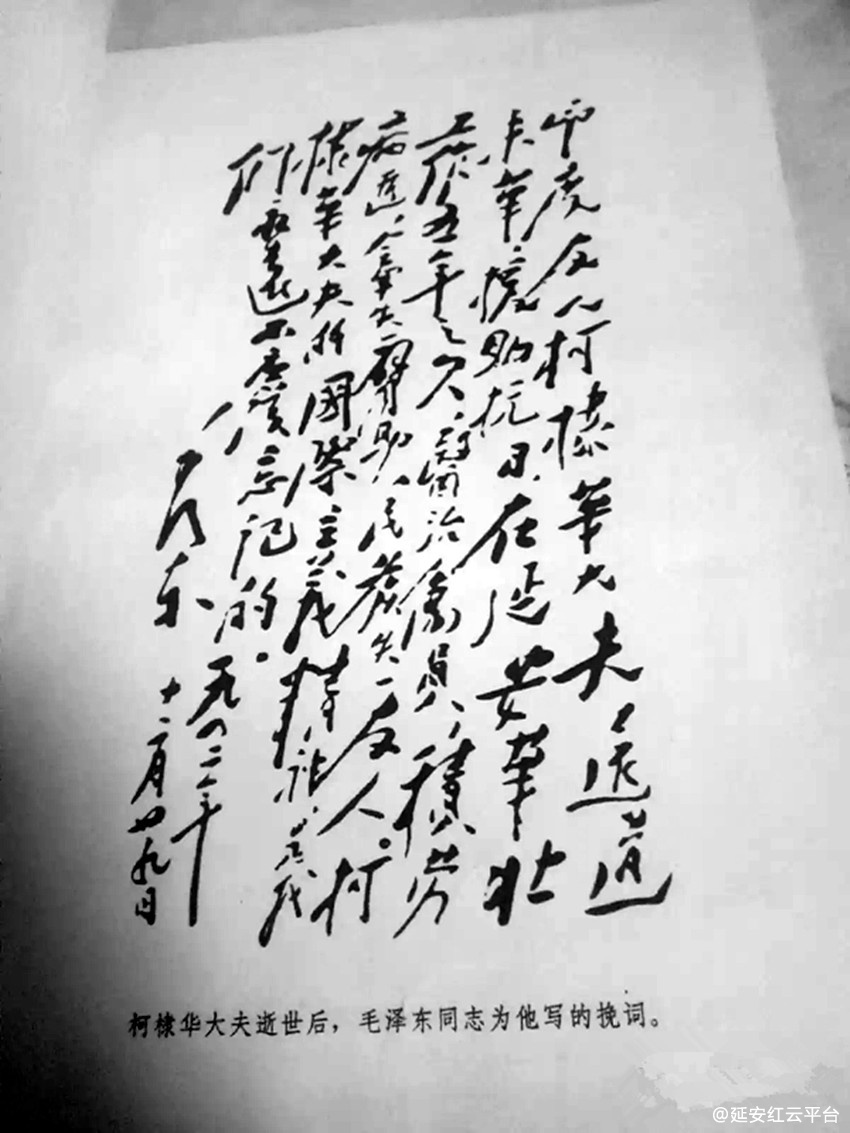 印度友人柯棣華大夫遠道
来華，援助抗日，在延安華北
工作五年之久，醫治傷員，積勞
病逝，全軍失一臂助，民族失一友人。柯
棣華大夫的國際主義精神，是我
們永遠不應該忘記的。
毛澤東
一九四二年
十二月廿九日
柯棣华大夫逝世后，毛泽东同志为他写的挽词。
@延安红云平台